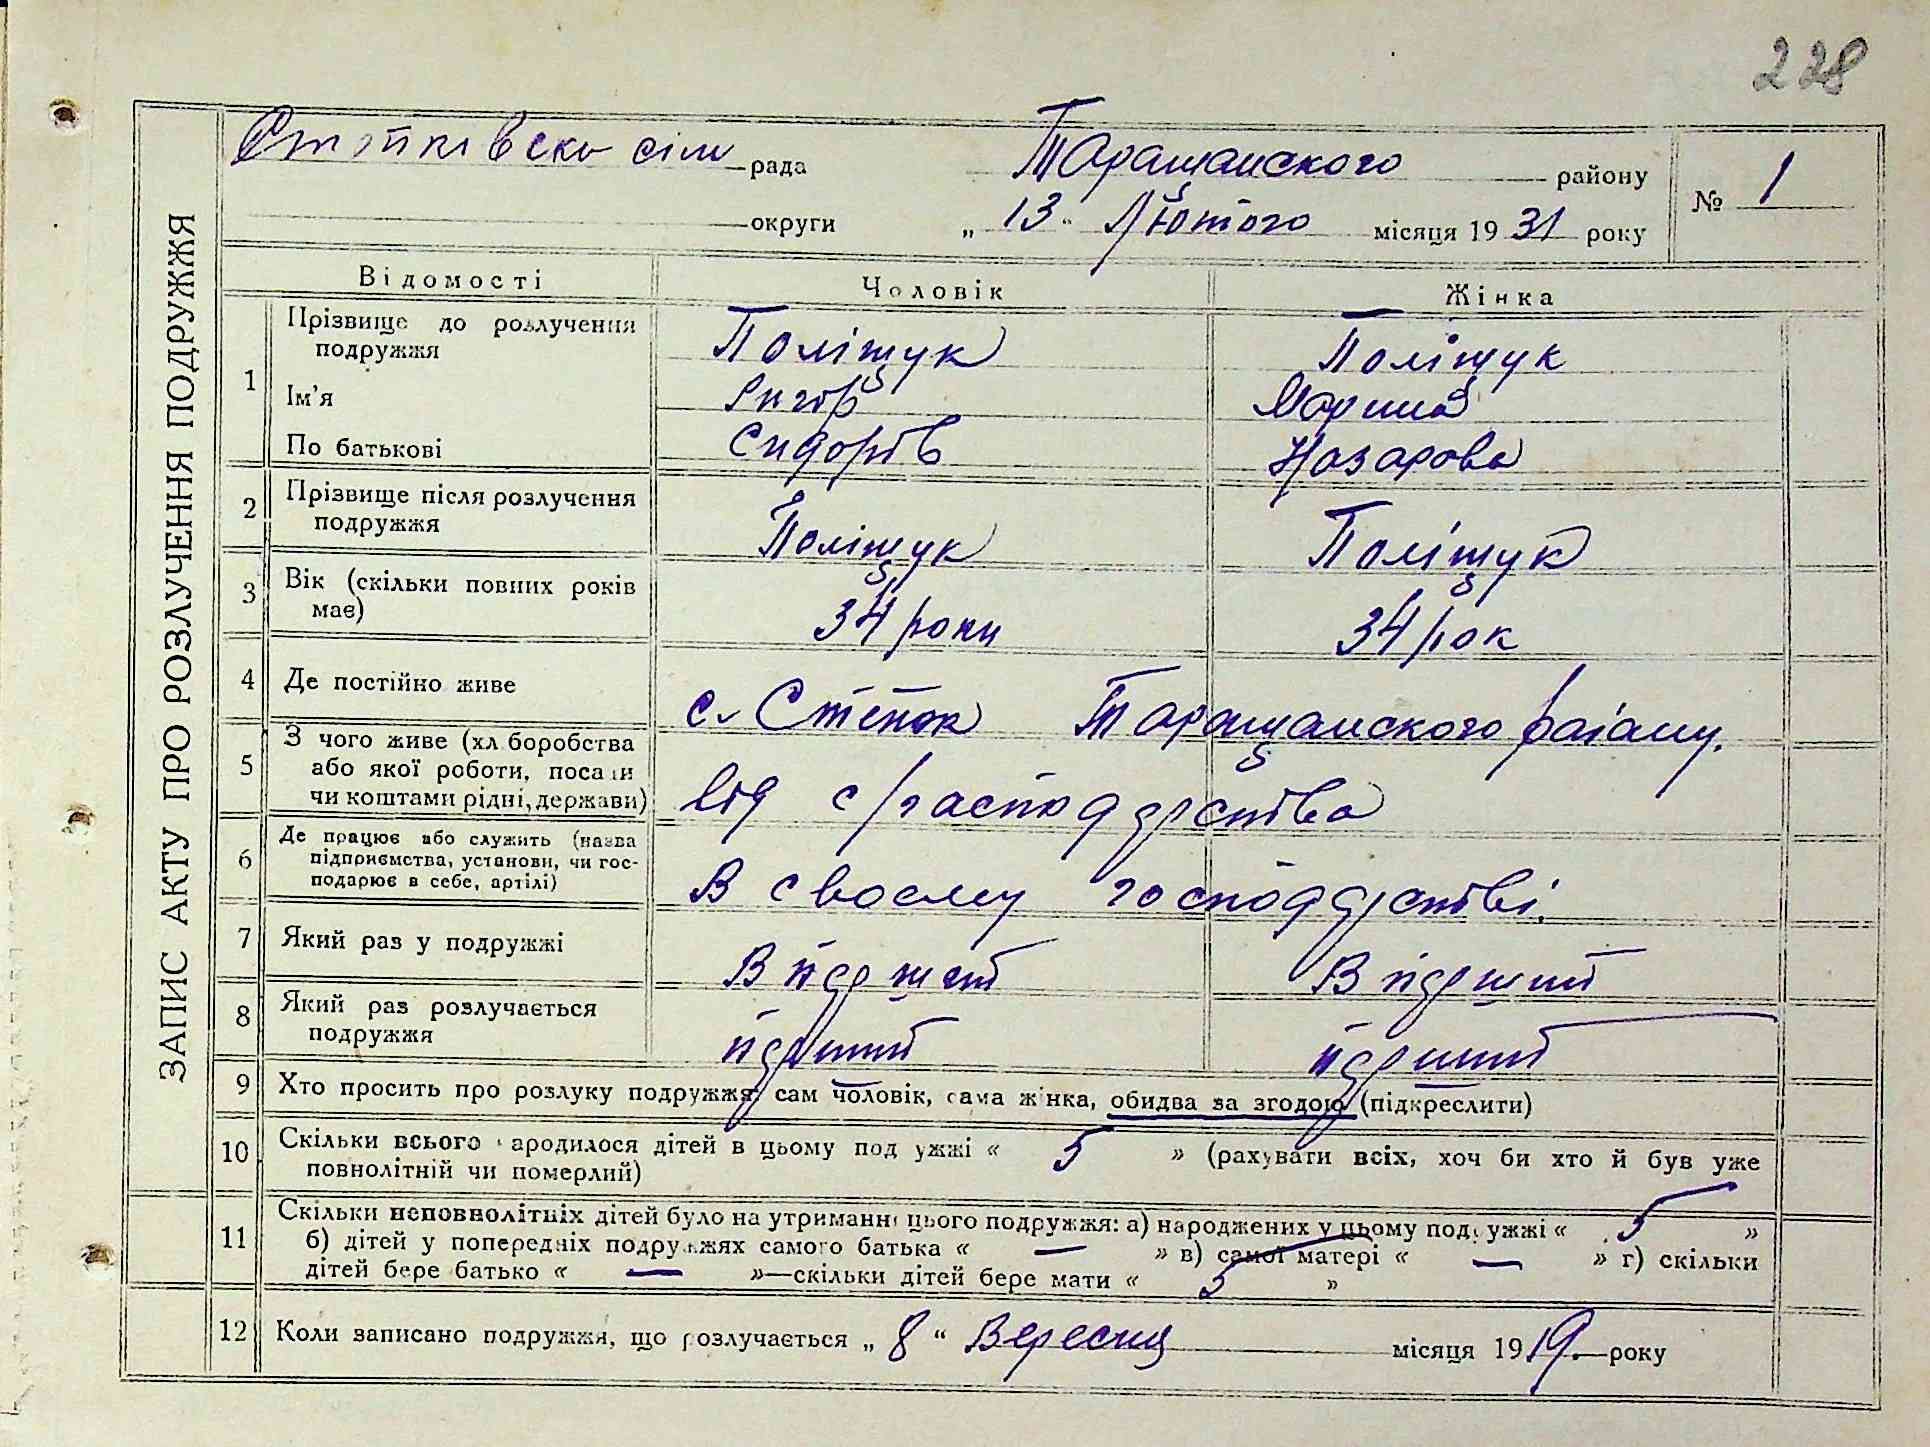 228
ЗАПИС АКТУ ПРО РОЗЛУЧЕННЯ ПОДРУЖЖЯ
сіль рада Таращанского району № 1
округи „ 13 “ Лютого місяця 19 31 року
Відомості Чоловік Жінка
1 Прізвище до розлучення подружжя Поліщук Поліщук
Ім'я Ригор Марина
По батькові Сидорів Назарова
2 Прізвище після розлучення подружжя Поліщук Поліщук
3 Вік (скільки повних років має) 34 роки 34 рок
4 Де постійно живе с. Степок Таращанского раіану.
5 З чого живе (хл боробства або якої роботи, посади чи коштами рідні, держави) від с/господарства
6 Де працює або служить (назва підприємства, установи, чи господарює в себе, артілі) В своєму господарстві.
7 Який раз у подружжі В перший В перший
8 Який раз розлучається подружжя перший перший
9 Хто просить про розлуку подружжя: сам чоловік, сама жінка, обидва за згодою (підкреслити)
10 Скільки всього народилося дітей в цьому подружжі « 5 » (рахувати всіх, хоч би хто й був уже
повнолітній чи померлий)
11 Скільки неповнолітніх дітей було на утриманні цього подружжя: а) народжених у цьому подружжі « 5 »
б) дітей у попередніх подружжях самого батька « — » в) самої матері « — » г) скільки
дітей бере батько « — »—скільки дітей бере мати « 5 »
12 Коли записано подружжя, що розлучається „ 8 “ Вересня місяця 1919. року